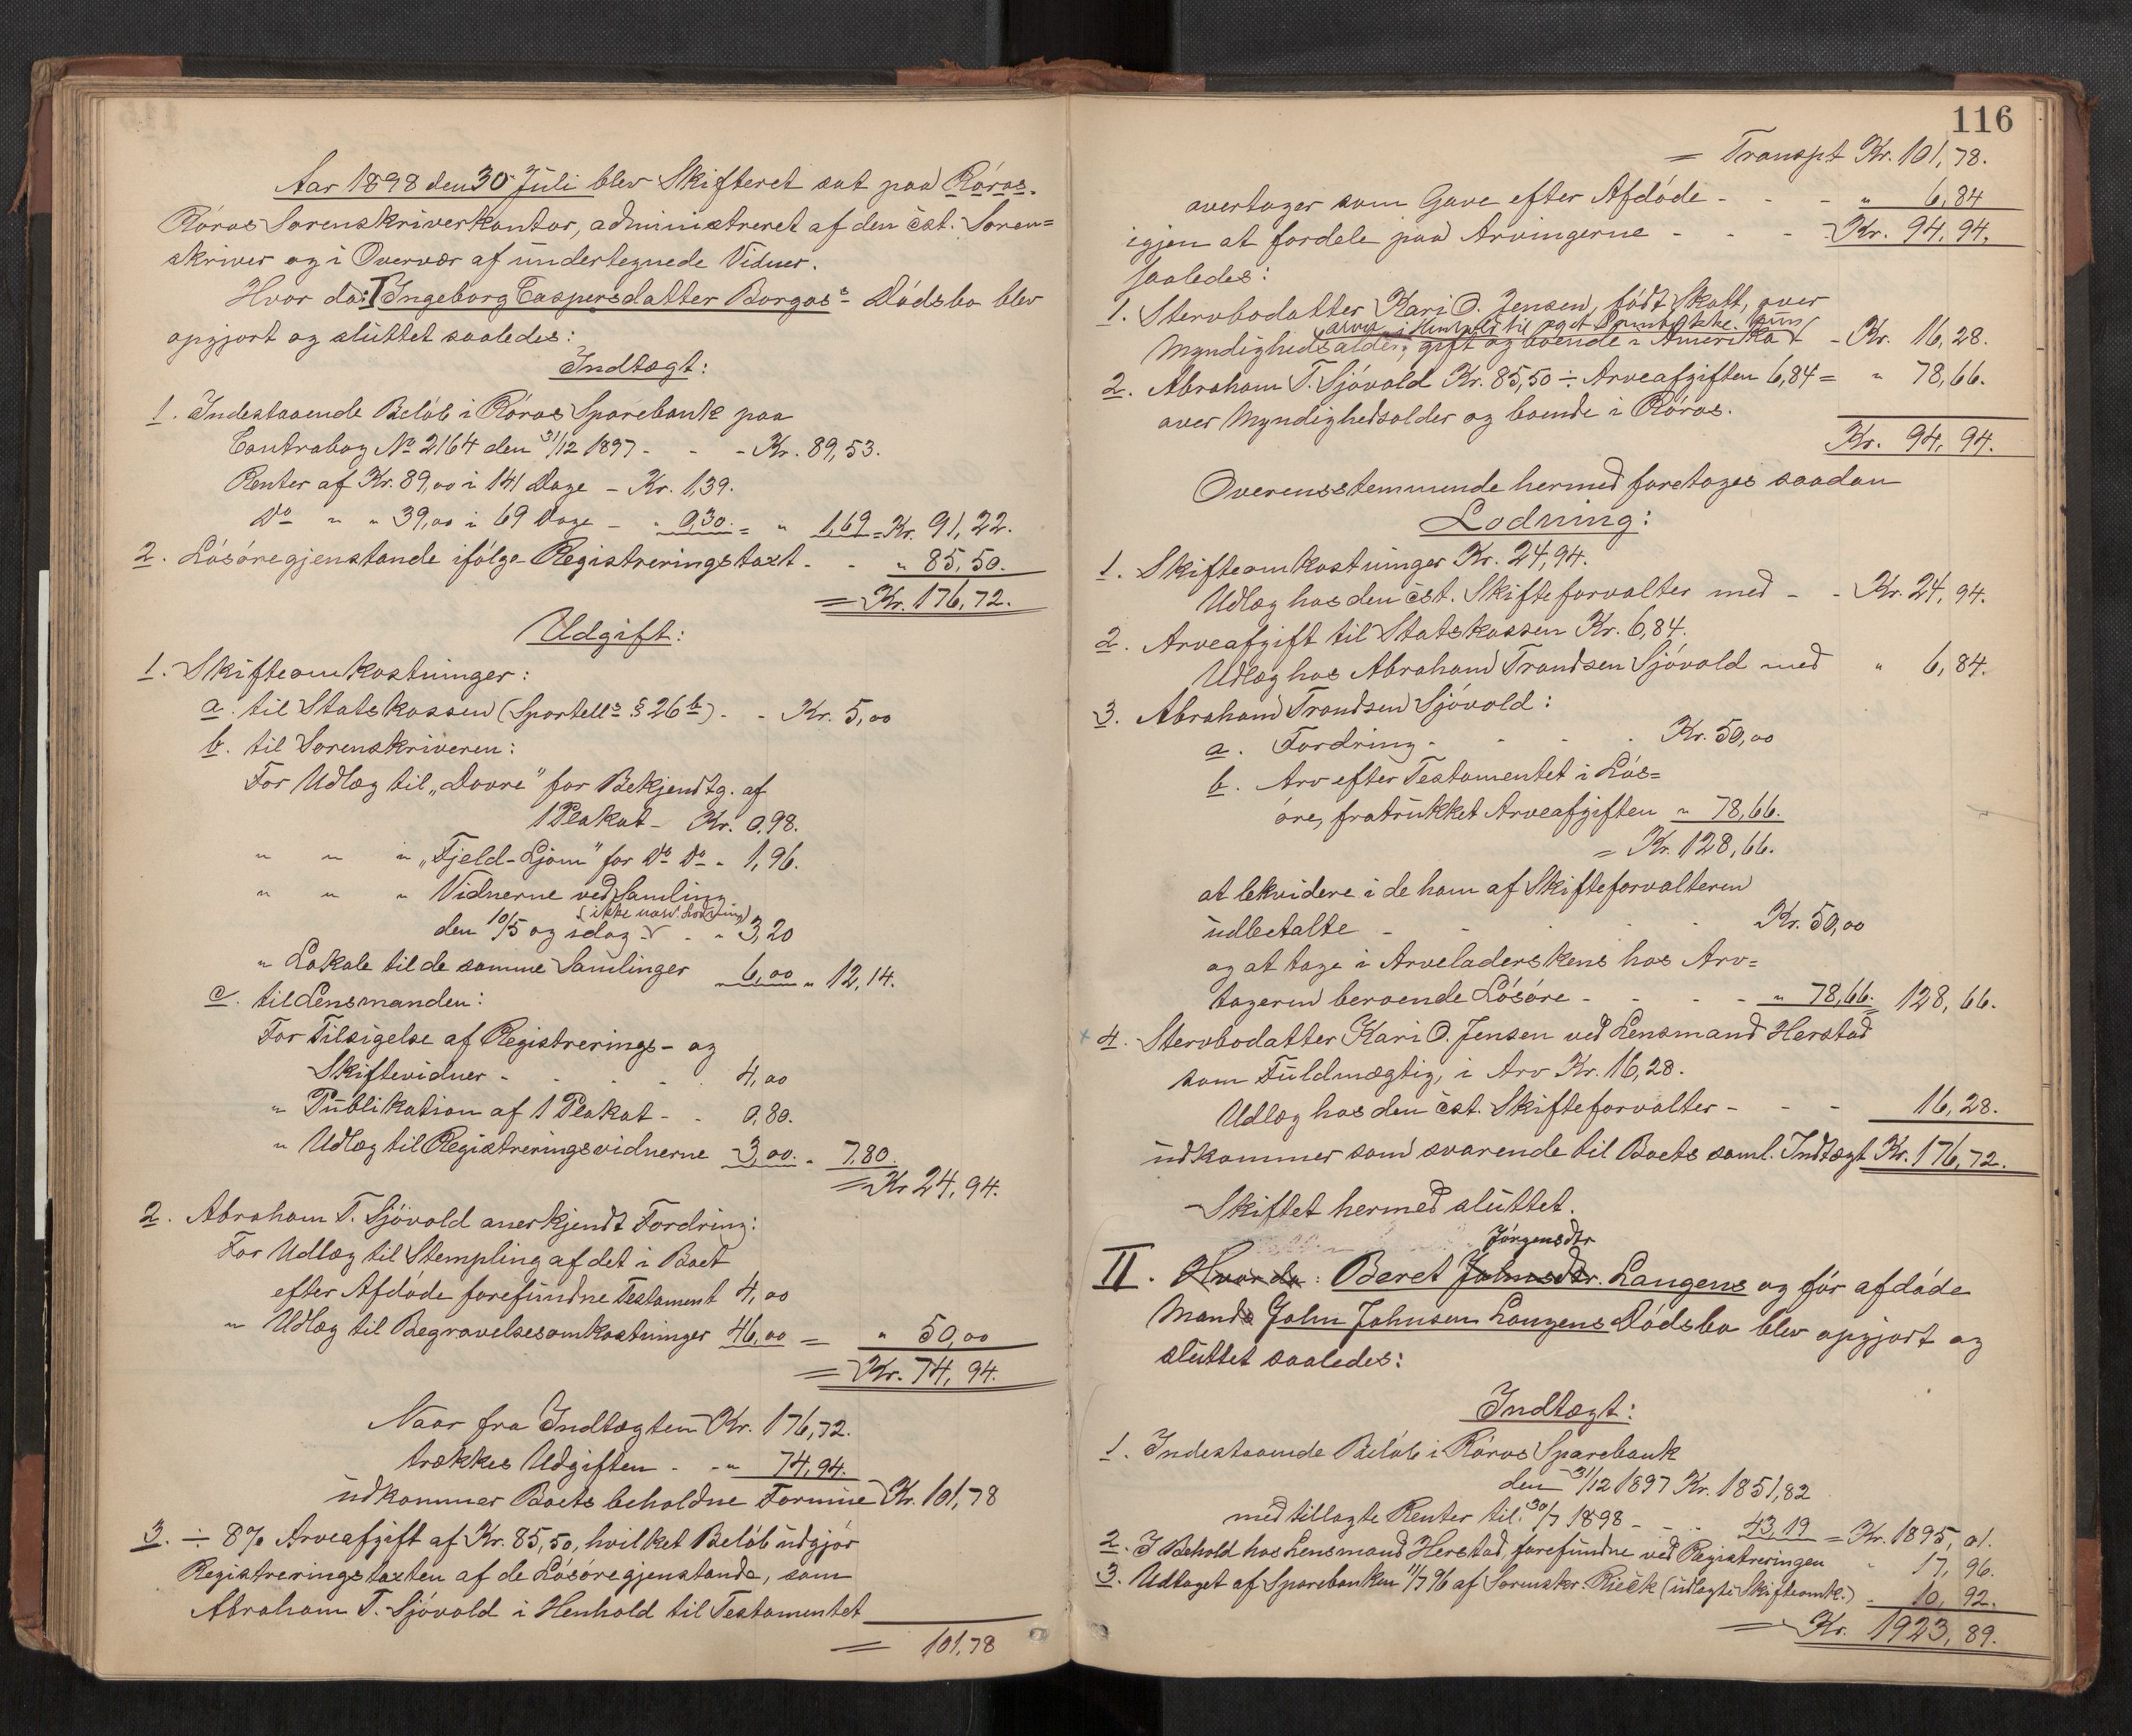 Aar 1898 den 30 Juli blev Skifteret sat paa Röros
Röros Sorenskriverkontor, administreret af den cst. Soren=
skriver og i Overvær af undertegnede Vidner.
Hvor da: I Ingeborg Caspersdatter Borgos's Dödsbo blev
opgjort og sluttet saaledes:
Indtægt:
1. Indestaaende Belöb i Röros Sparebank paa
Contrabog No 2164 den 31/12 1897 - - - Kr. 89,53.
Renter af Kr. 89,00 i 141 Dage - Kr. 1,39.
Do " " 39,00 i 69 Dage - " 0,30. = " 1,69 = Kr. 91,22.
2. Lösöregjenstande ifölge Registreringstaxt - - " 85,50.
= Kr. 176,72.
Udgift:
1. Skifteomkostninger:
a. til Statskassen (Sportell. § 26 b) - - Kr. 5,00
b. til Sorenskriveren:
For Udlæg til „Dovre" for Bekjendtg. af
1 Plakat - Kr. 0,98.
" " " „Fjeld-Ljom" for Do Do " 1,96.
" " " Vidnerne ved Samling
(ikke
den 10/5 og idag - - " 3,20
" Lokale til de samme Samlinger " 6,00 " 12,14.
c. til Lensmanden:
For Tilsigelse af Registrerings- og
Skiftevidner - - - - 4,00
" Publikation af 1 Plakat - - 0,80.
" Udlæg til Registreringsvidnerne 3,00. " 7,80.
= Kr 24,94.
2. Abraham T. Sjövold anerkjendt Fordring:
For Udlæg til Stempling af det i Boet
efter Afdöde forefundne Testament 4,00
" Udlæg til Begravelsesomkostninger 46,00 = " 50,00
= Kr. 74,94.
Naar fra Indtægten Kr. 176,72.
trækkes Udgiften - - " 74,94.
udkommer Boets beholdne Formue Kr. 101,78
3. ÷ 8% Arveafgift af Kr. 85,50, hvilket Belöb udgjör
Registreringstaxten af de Lösöregjenstande, som
Abraham T. Sjövold i Henhold til Testamentet
= 101,78
116
= Transpt Kr. 101,78.
overtager som Gave efter Afdöde - - - " 6,84
igjen at fordele paa Arvingerne - - - Kr. 94,94.
saaledes:
1. Stervbodatter Kari O. Jensen, födt Skott, over
arver i Henhold til
Myndighedsalder, gift og boende i Amerika - Kr. 16,28.
2. Abraham T. Sjövold Kr. 85,50 ÷ Arveafgiften 6,84 = " 78,66.
over Myndighedsalder og boende i Röros.
Kr. 94,94.
Overensstemmende hermed foretages saadan
Lodning:
1. Skifteomkostninger Kr. 24,94.
Udlæg hos den cst. Skifteforvalter med - - Kr. 24,94.
2. Arveafgift til Statskassen Kr. 6,84.
Udlæg hos Abraham Trondsen Sjövold med " 6,84.
3. Abraham Trondsen Sjövold:
a. Fordring - - - - Kr. 50,00
b. Arv efter Testamentet i Lös=
öre, fratrukket Arveafgiften " 78,66.
= Kr. 128,66.
at lekvidere i de ham af Skifteforvalteren
udbetalte - - - - Kr. 50,00
og at tage i Arveladerskens hos Arv=
tageren beroende Lösöre - - - - " 78,66. = 128,66.
4. Stervbodatter Kari O. Jensen ved Lensmand Herstad
som Fuldmægtig, i Arv Kr. 16,28.
Udlæg hos den cst. Skifteforvalter - - - 16,28.
udkommer som svarende til Boets saml. Indtægt Kr. 176,72.
Skiftet hermed sluttet.
Jörgensdtr
II. Hvor da: Beret Johnsdtr. Langens og för afdöde
Mands John Johnsen Langens Dödsbo blev opgjort og
sluttet saaledes:
Indtægt:
1. Indestaaende Belöb i Röros Sparebank
den 31/12 1897 Kr. 1851,82
med tillagte Renter til 30/7 1898 - - - 43,19 = Kr. 1895,01.
2. I Behold hos Lensmand Herstad, forefundne ved Registreringen " 17,96.
3. Udtaget af Sparebanken 11/7 96 af Sorenskr. Rieck (udlagte Skifteomk.) " 10,92.
= Kr. 1923,89.